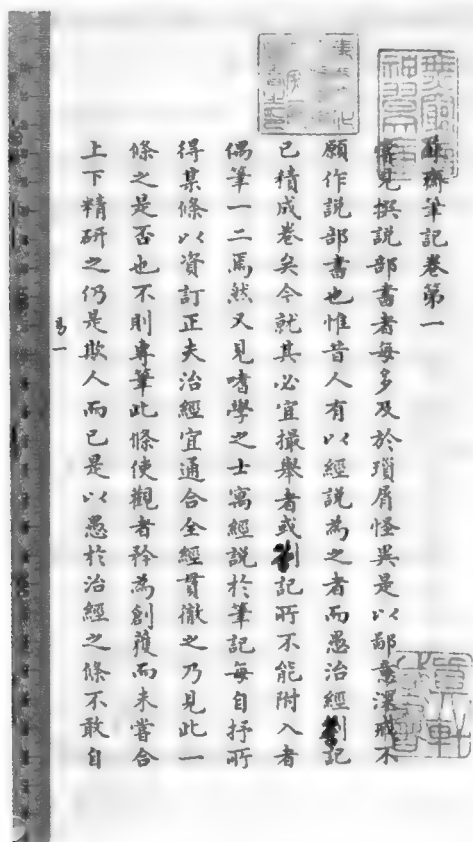 蘇齋筆記卷第一
嘗見撰説部書者每多及於瑣屑怪異是以鄙意深戒不
願作説部書也惟昔人有以經説為之者而愚治經劄記
已積成卷矣今就其必宜撮舉者或劄記所不能附入者
偶筆一二焉然又見嗜學之士寓經説於筆記每自抒所
得某條以資訂正夫治經宜通合全經貫徹之乃見此一
條之是否也不則專筆此條使觀者矜為創獲而未嘗合
上下精研之仍是欺人而已是以愚於治經之條不敢自
易一